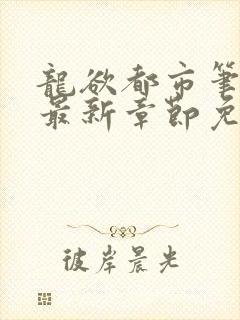 龍欲都市筆
最新章節免
彼岸晨光